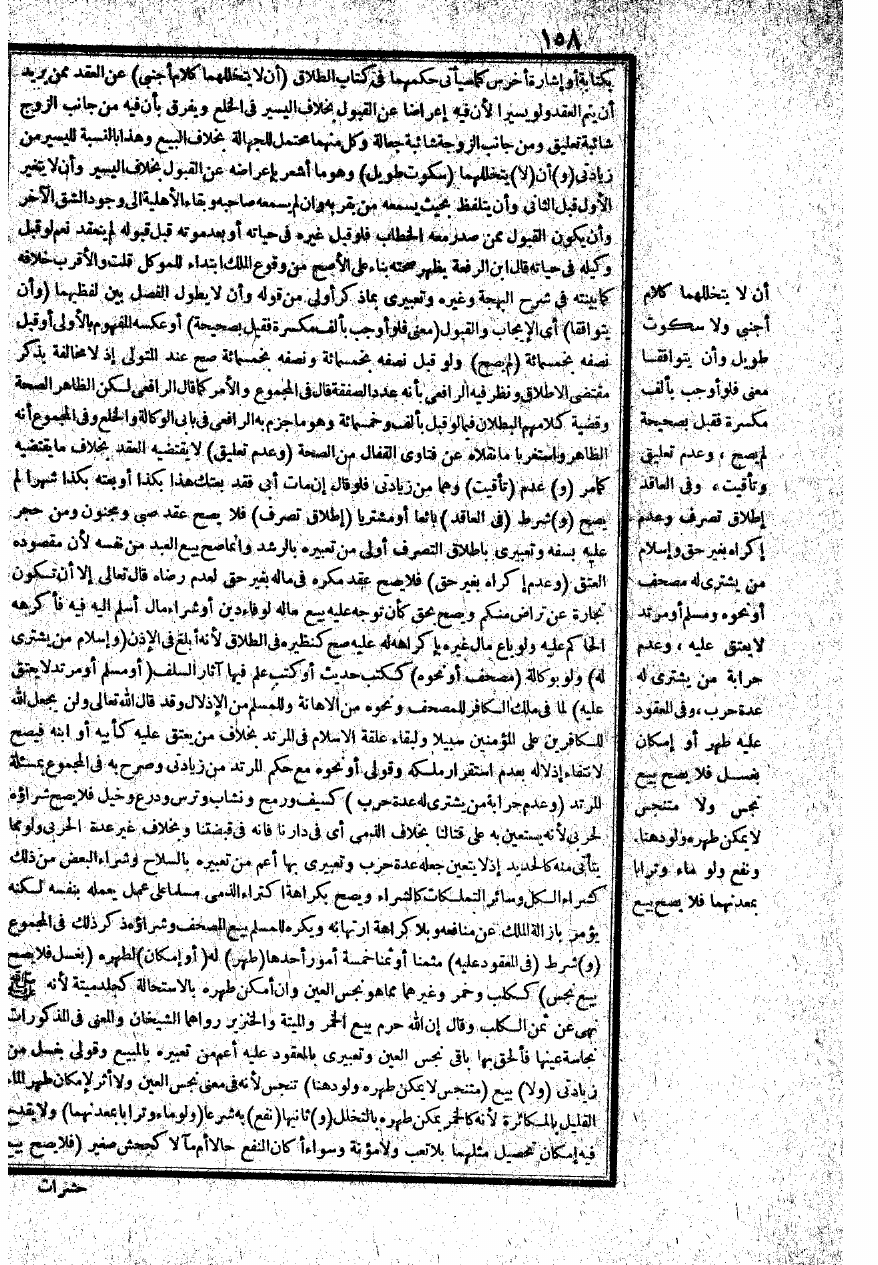 ١٥٨
بكتابة أو إشارة أخرس كما سيأتى حكمهما فى كتاب الطلاق (أن لا يتخللهما كلام أجنبى) عن العقد ممن يريد
أن يتم العقد ولو يسيرا لأن فيه إعراضا عن القبول بخلاف اليسير فى الخلع ويفرق بأن فيه من جانب الزوج
شائبة تعليق ومن جانب الزوجة شائبة جعالة وكل منهما محتمل للجهالة بخلاف البيع وهذا بالنسبة لليسير من
زيادتى (و) أن (لا) يتخللهما (سكوت طويل) وهو ما أشعر بإعراضه عن القبول بخلاف اليسير وأن لا يتغير
الأول قبل الثانى وأن يتلفظ بحيث يسمعه من بقربه وان لم يسمعه صاحبه وبقاء الأهلية الى وجود الشق الآخر
وأن يكون القبول ممن صدر معه الخطاب فلو قبل غيره فى حياته أو بعد موته قبل قبوله لم ينعقد نعم لو قبل
وكيله فى حياته قال ابن الرفعة يظهر صحته بناء على الأصح من وقوع الملك ابتداء للموكل قلت والأقرب خلافه
كما بينته فى شرح البهجة وغيره وتعبيرى بما ذكر أولى من قوله وأن لا يطول الفصل بين لفظيهما (وأن
يتوافقا) أى الإيجاب والقبول (معنى فلو أوجب بألف مكسرة فقبل بصحيحة) أو عكسه المفهوم بالأولى أو قبل
نصفه بخمسمائة (لم يصح) ولو قبل نصفه بخمسمائة ونصفه بخمسمائة صح عند المتولى إذ لا مخالفة بذكر
مقتضى الاطلاق ونظر فيه الرافعى بأنه عدد الصفقة قال فى المجموع والأمر كما قال الرافعى لكن الظاهر الصحة
وقضية كلامهم البطلان فيما لو قبل بألف وخمسمائة وهو ما جزم به الرافعى فى بابى الوكالة والخلع وفى المجموع أنه
الظاهر واستغربا ما نقلاه عن فتاوى القفال من الصحة (وعدم تعليق) لا يقتضيه العقد بخلاف ما يقتضيه
كما مر (و) عدم (تأقيت) وهما من زيادتى فلو قال إن مات أبى فقد بعتك هذا بكذا أو بعته بكذا شهرا لم
يصح (و) شرط (فى العاقد) بائعا أو مشتريا (إطلاق تصرف) فلا يصح عقد صبى ومجنون ومن حجر
عليه بسفه وتعبيرى باطلاق التصرف أولى من تعبيره بالرشد وانما صح بيع العبد من نفسه لأن مقصوده
العتق (وعدم إكراه بغير حق) فلا يصح عقد مكره فى ماله بغير حق لعدم رضاه قال تعالى إلا أن تكون
تجارة عن تراض منكم ويصح بحق كأن توجه عليه بيع ماله لوفاء دين أو شراء مال أسلم اليه فيه فأكرهه
الحاكم عليه ولو باع مال غيره بإكراهه له عليه صح كنظيره فى الطلاق لأنه أبلغ فى الإذن (وإسلام من يشترى
له) ولو بوكالة (مصحف أو نحوه) ككتب حديث أو كتب علم فيها آثار السلف (أو مسلم أو مرتد لا يعتق
عليه) لما فى ملك الكافر للمصحف ونحوه من الاهانة وللمسلم من الإذلال وقد قال الله تعالى ولن يجعل الله
للكافرين على المؤمنين سبيلا ولبقاء علقة الاسلام فى المرتد بخلاف من يعتق عليه كأبيه أو ابنه فيصح
لانتفاء إذلاله بعدم استقرار ملكه وقولى أو نحوه مع حكم المرتد من زيادتى وصرح به فى المجموع بمسئلة
المرتد (وعدم حرابة من يشترى له عدة حرب) كسيف ورمح ونشاب وترس ودرع وخيل فلا يصح شراؤه
لحربى لأنه يستعين به على قتالنا بخلاف الذمى أى فى دارنا فانه فى قبضتنا وبخلاف غير عدة الحرب ولو مما
يتأتى منه كالحديد إذ لا يتعين جعله عدة حرب وتعبيرى بها أعم من تعبيره بالسلاح وشراء البعض من ذلك
كشراء الكل وسائر التملكات كالشراء ويصح بكراهة اكتراء الذمى مسلما على عمل يعمله بنفسه لكنه
يؤمر بازالة الملك عن منافعه وبلا كراهة ارتهانه ويكره للمسلم بيع المصحف وشراؤه ذكر ذلك فى المجموع
(و) شرط (فى المعقود عليه) مثمنا أو ثمنا خمسة أمور أحدها (طهر) له (أو إمكان) لطهره (بغسل فلا يصح
بيع نجس) ككلب وخمر وغيرهما مما هو نجس العين وان أمكن طهره بالاستحالة كجلد ميتة لأنه ﷺ
نهى عن ثمن الكلب وقال إن الله حرم بيع الخمر والميتة والخنزير رواهما الشيخان والمعنى فى المذكورات
نجاسة عينها فألحق بها باقى نجس العين وتعبيرى بالمعقود عليه أعم من تعبيره بالمبيع وقولى بغسل من
زيادتى (ولا) بيع (متنجس لا يمكن طهره ولو دهنا) تنجس لأنه فى معنى نجس العين ولا أثر لإمكان طهر الماء
القليل بالمكاثرة لأنه كالخمر يمكن طهره بالتخلل (و) ثانيها (نفع) به شرعا (ولو ماء وترابا بمعدنهما) ولا يقدح
فيه إمكان تحصيل مثلهما بلا تعب ولا مؤنة وسواء أكان النفع حالا أم مآلا كجحش صغير (فلا يصح بيع
حشرات
أن لا يتخللهما كلام
أجنبى ولا سكوت
طويل وأن يتوافقا
معنى فلو أوجب بألف
مكسرة فقبل بصحيحة
لم يصح ، وعدم تعليق
وتأقيت ، وفى العاقد
إطلاق تصرف وعدم
إكراه بغير حق وإسلام
من يشترى له مصحف
أو نحوه ومسلم أو مرتد
لا يعتق عليه ، وعدم
حرابة من يشترى له
عدة حرب ، وفى المعقود
عليه طهر أو إمكان
بغسل فلا يصح بيع
نجس ولا متنجس
لا يمكن طهره ولو دهنا.
ونفع ولو ماء وترابا
بمعدنهما فلا يصح بيع